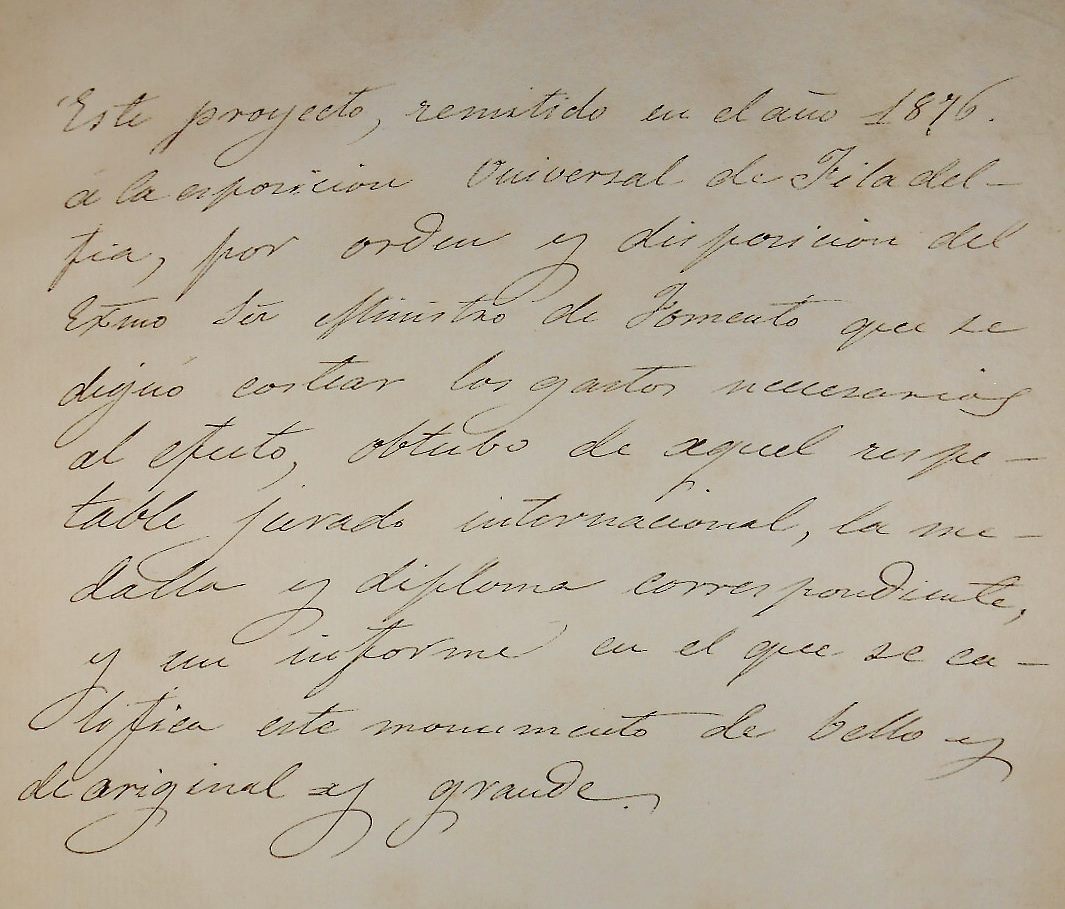 Este proyecto, remitido en el año 1876.
á la esposicion Universal de Filadel-
fia, por orden y disposicion del
Exmo Sr. Ministro de Fomento que se
dignó costear los gastos necesarios
al efecto, obtubo de aquel respe-
table jurado internacional, la me-
dalla y diploma correspondiente,
y un informe en el que se ca-
lifica este monumento de bello y
de original y grande.